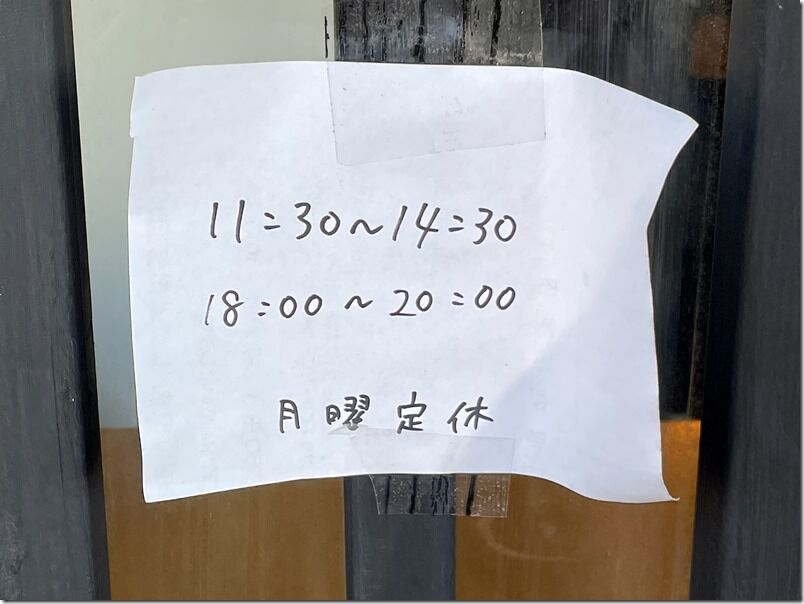 11:30～14:30
18:00～20:00
月曜定休